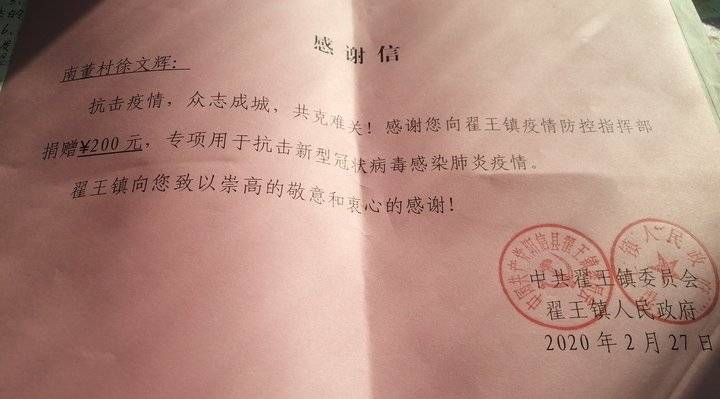 感谢信
南董村徐文辉：
抗击疫情，众志成城，共克难关！感谢您向翟王镇疫情防控指挥部
捐赠¥200元，专项用于抗击新型冠状病毒感染肺炎疫情。
翟王镇向您致以崇高的敬意和衷心的感谢！
中共翟王镇委员会
翟王镇人民政府
2020年2月27日
中国共产党阳信县翟王镇委员会
镇人民政府